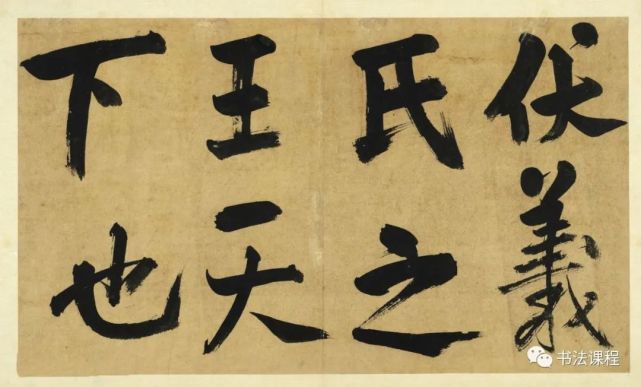 伏羲
氏之
王天
下也
书法课程